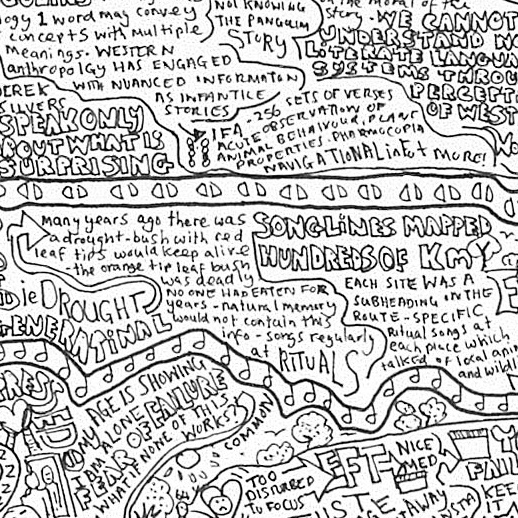 ogy 1 word may convey
concepts with multiple
meanings. WESTERN
anthropology HAS ENGAGED
WITH NUANCED INFORMATION
AS INFANTILE
STORIES
NOT KNOWING
THE PANGOLIN
STORY
the moral of the
story - WE CANNOT
UNDERSTAND NO
LITERATE LANGUA
SYSTEMS THROU
PERCEPT
OF WEST
DEREK
SILVERS
SPEAK ONLY
ABOUT WHAT IS
SURPRISING
IFA - 256 SETS OF VERSES
ACUTE OBSERVATION OF
ANIMAL BEHAVIOUR. PLANT
PROPERTIES. PHARMOCOPIA
NAVIGATIONAL info + more!
many years ago there was
a drought - bush with red
leaf tips would keep alive
- the orange tip leaf bush
was deadly
NO ONE HAD EATEN FOR
years - natural memory
would not contain this
info - songs regularly
at RITUALS
die DROUGHT
GENERATINAL
SONGLINES MAPPED
HUNDREDS OF Km
EACH SITE WAS A
SUBHEADING IN THE
ROUTE - SPECIFIC
Ritual songs at
each place which
talked of local ani
and wildl
MY AGE IS SHOWING
I AM ALONE FAILURE
FEAR OF FAILURE
WHAT IF NONE OF THIS
WORKS?
COMMON
TOO
DISTURBED
to FOCUS
EFT
NICE
MED
AWAY
FAIL
KEE
IT